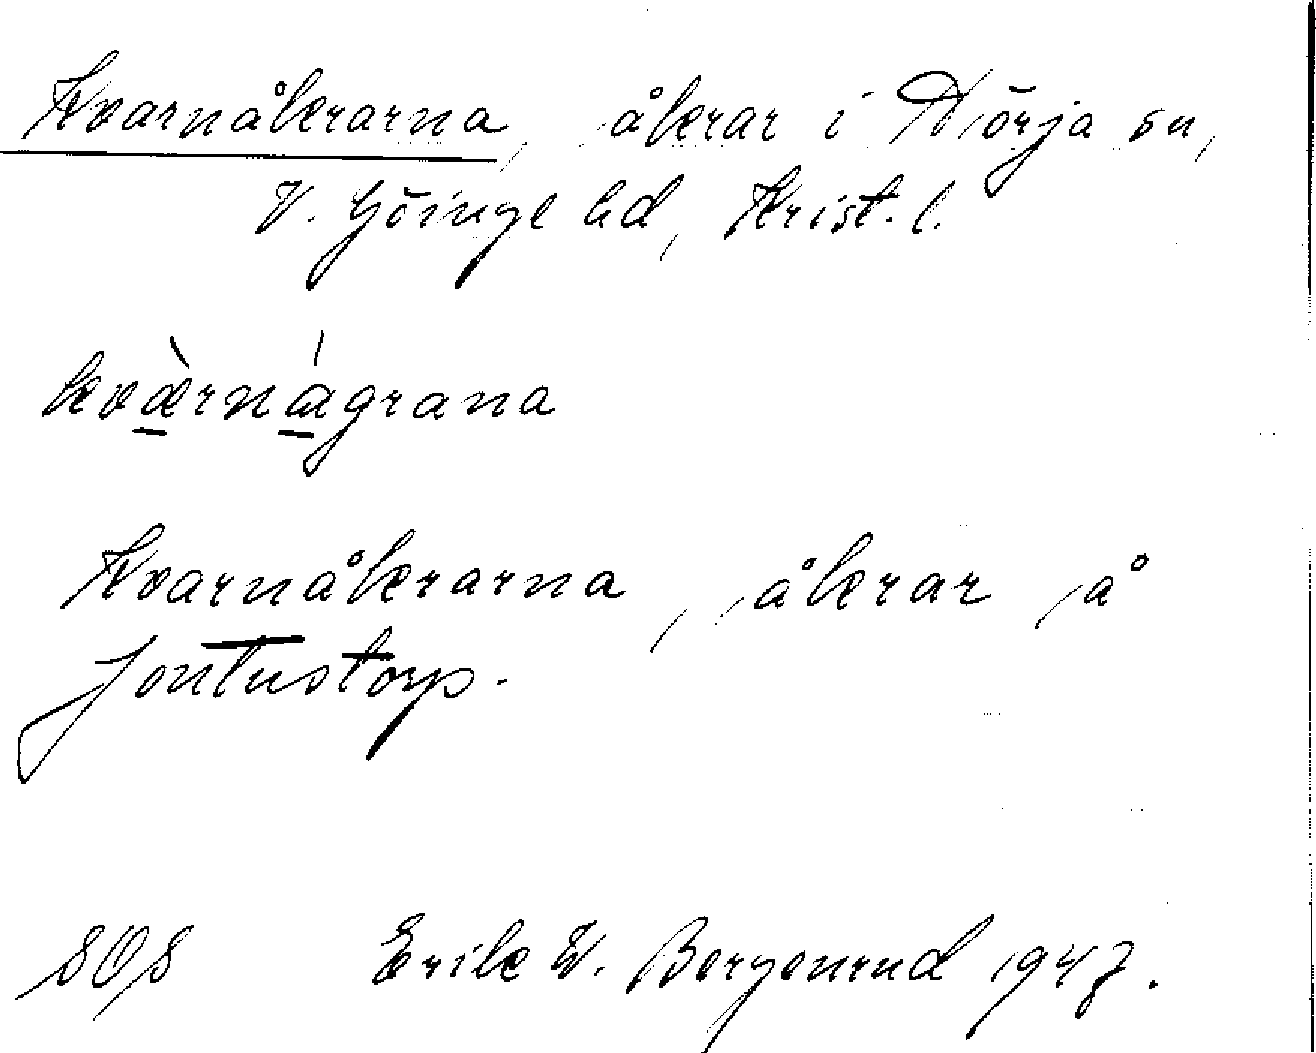 Kvarnåkrarna, åkrar i Nörja sn,
V. Göinge hd, Krist. l.
kvàrnágrana
Kvarnåkrarna, åkrar å
Jontustorp.
SOS Erik W. Bergenrud 1947.